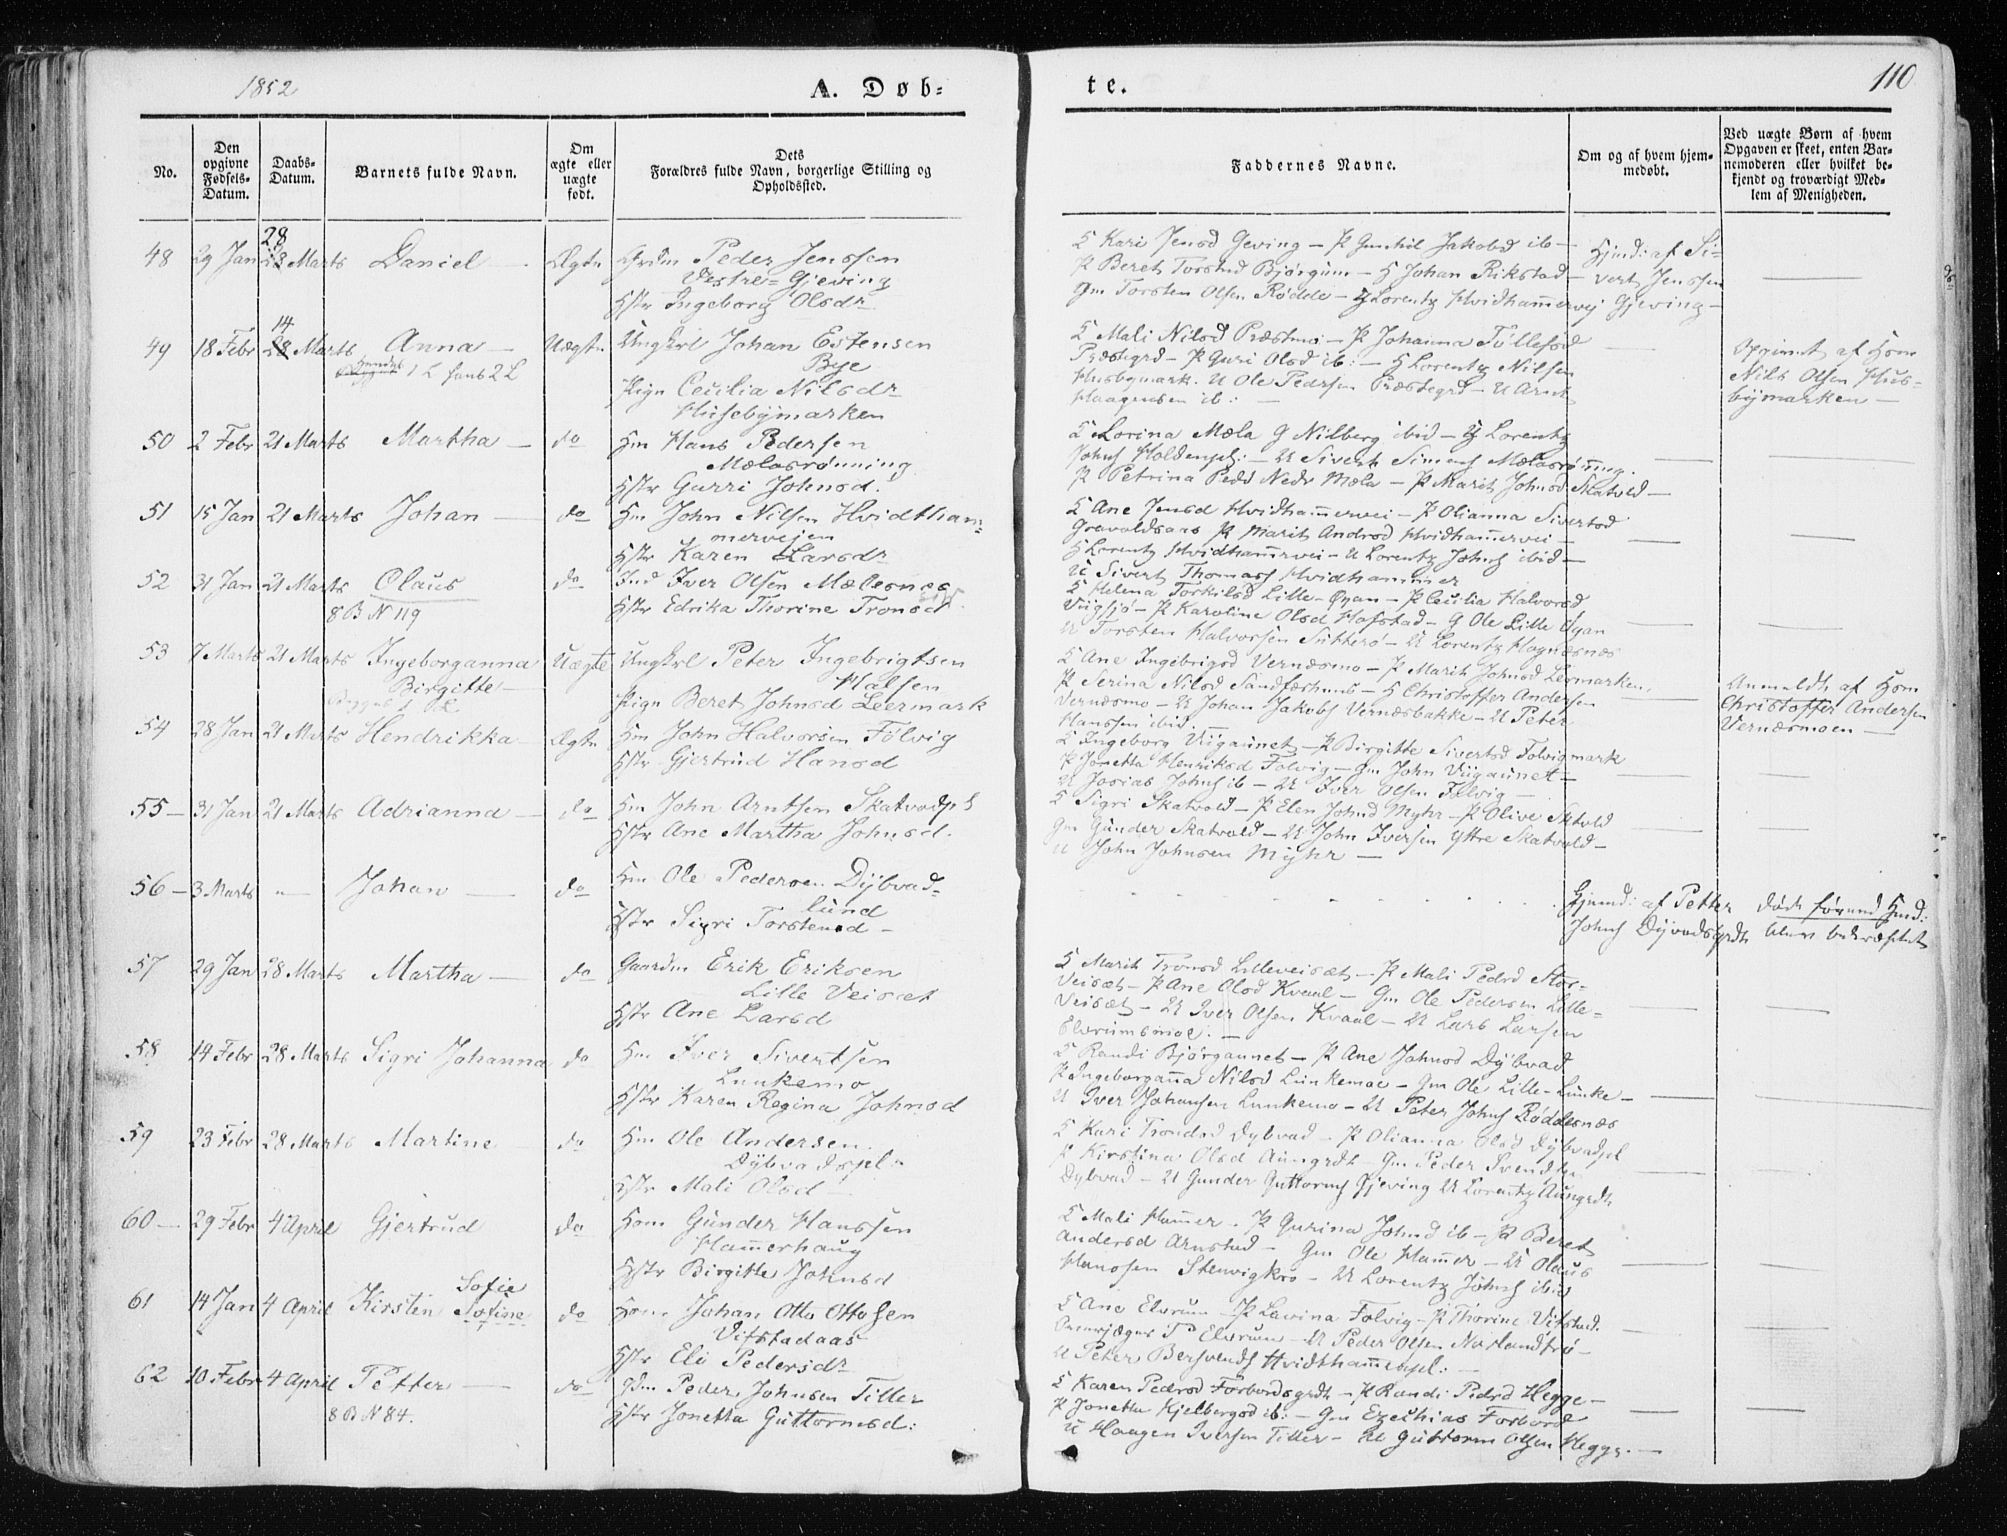 1852
A. Døb-
te.
110
No.
Den opgivne Fødsels-Datum.
Daabs-Datum.
Barnets fulde Navn.
Om ægte eller uægte født.
Dets Forældres fulde Navn, borgerlige Stilling og Opholdssted.
Faddernes Navne.
Om og af hvem hjem-medøbt.
Ved uægte Børn af hvem Opgaven er skeet, enten Bar-nemoderen eller hvilket be-kjendt og troværdigt Med-lem af Menigheden.
28
48 29 Jan Marts Daniel — Ægte Grdm Peder Jenssen
Vestre-Gjeving
Hstr Ingeborg Olsdr
K Kari Jensd Geving — P Gunhil Jakobsd ib —
P Beret Torstensd Bjørgum — H Johan Rikstad —
Gm Torsten Olsen Rødde — Lorentz Hvidhammervej
Hjmd: af Si-
vert Jenssen
Gjeving —
14
49 18 Febr 28 Marts Anna — Uægte Ungkrl Johan Estensen
Bye
Pige Cecilia Nilsdr
Husebymarken
K Mali Nilsd Præstmo — P Johanna Tøllefsd
Præstegrd — P Guri Olsd ib: — H Lorentz Nilsen
Husbymark. U Ole Pedersen Præstegrd — U Arnt
Haagensen ib: —
Opgivet af Hsm
Nils Olsen Hus-
bymarken —
50 2 Febr 21 Marts Martha — do Hm Hans Pedersen
Mælasrønning
Hstr Gurri Johnsd.
K Lorina Mæla G Nilberg ibid — Lorentz
Johns Holdenpl: — U Sivert Simons Mælasrønning.
P Petrina Pedd Nedr Mæla — P Marit Johnsd Skatvold —
51 15 Jan 21 Marts Johan — do Hm John Nilsen Hvidtham-
mervejen
Hstr Karen Larsdr
K Ane Jensd Hvidhammervei — P Olianna Sivertsd
Gravaldsaas P Marit Andrsd Hvidhammervei —
H Lorentz Hvidhammrvei — U Lorentz Johns ibid —
U Sivert Thomass Hvidhammer
52 31 Jan 21 Marts Olaus do Ind Iver Olsen Mælesnes
8 B N 119
Hstr Edrika Thorine Tronsd
K Helena Torkilsd Lille-Øyan — P Cecilia Halvorsd
P Karoline Olsd Hofstad — G Ole Lille Øyan
U Torsten Halvorsen Sutterø — U Lorentz Hognæsnæs
53 7 Marts 21 Marts Ingeborganna Uægte Ungkrl Peter Ingebrigtsen
Birgitte —
Halsen
Pige Beret Johnsd Leermark
K Ane Ingebrigsd Vernæsmo — P Marit Johnsd Lermarken.
P Serina Nilsd Sandfærhus — H Christoffer Andersen
Vernæsmo — U Johan Jakobs Vernæsbakke — U Peter
Hanssen ibid. —
Anmeldt af Hsm
Christoffer Andersen
Vernæsmoen —
54 28 Jan 21 Marts Hendrikka Ægte Hm John Halvorsen Følvig
Hstr Gjertrud Hansd
K Ingeborg Viigaunet — P Birgitte Sivertsd Folvigmark
P Jonetta Henriksd Folvig — Gm John Viigaunet —
U Josias Johns ib — U Iver Olsen Følvig —
55 — 31 Jan 21 Marts Adrianna — do Hm John Arntsen Skatvoldpl
Hstr Ane Martha Johnsd.
K Sigri Skatvold — P Elen Johnsd Myhr — P Olive Sktvld
Gm Gunder Skatvold — U John Iversen Yttre Skatvold —
U John Johnsen Myhr —
56 — 3 Marts " — Johan — do Hm Ole Pedersen Dybvad-
lund
Hstr Sigri Torstensd —
Hjemd: af Petter
Johns Dyvadsgrdt
døde førend Hmd:
blev bekræftet
57 29 Jan 28 Marts Martha — do Gaardm Erik Eriksen
Lille Veisæt
Hstr Ane Larsd
K Marit Tronsd Lilleveisæt — P Mali Pedrd Stor-
Veisæt — P Ane Olsd Kvaal — Gm Ole Pedersen Lille-
Veisæt — U Iver Olsen Kvaal — U Lars Larsen
Elvrumsmoe. —
58 14 Febr 28 Marts Sigri Johanna do Hm Iver Sivertsen
Lunkemo
Hstr Karen Regina Johnsd
K Randi Bjørgaunet — P Ane Johnsd Dybvad
P Ingeborganna Nilsd Lunkemoe — Gm Ole Lille-Lunke —
U Iver Johansen Lunkemo — U Peter Johns Røddesnæs
59 23 Febr 28 Marts Martine do Hm Ole Andersen
Dybvadspl-
Hstr Mali Olsd —
K Kari Trondsd Dybvad — P Olianna Olsd Dybvadpl
P Kirstina Olsd Aungrdt — Gm Peder Svendsen
Dybvad — U Gunder Guttorms Gjeving U Lorentz Aungrdt
60 — 29 Febr 4 April Gjertrud do Hsm Gunder Hanssen
Hammerhaug
Hstr Birgitte Johnsd
K Mali Hammer — P Gurina Johnsd ib — P Beret
Andersd Arnstad — Gm Ole Hammer — U Olaus
Hanssen Stenvigkro — U Lorentz Johns ibid
61 14 Jan 4 April Kirsten Sofie Sofine do Hsm Johan Otto Ottosen
Vifstadaas
Hstr Eli Pedersdr
K Ane Elvrum — P Lavina Folvig — P Thorine Vifstad.
P Elvrum — U Peder Olsen Norlandtrø —
U Peter Bersvends Hvidthammerpl: —
62 10 Febr 4 April Petter — do Gdm Peder Johnsen Tiller
8 B N 84.
Hstr Jonetta Guttormsd:
K Karen Pedrsd Forbordsgrdt — P Randi Pedrd Hegge —
P Jonetta Kjelbergsd ib: — Gm Ezechias Forbord
U Haagen Iversen Tiller — U Guttorm Olsen Hegge. —